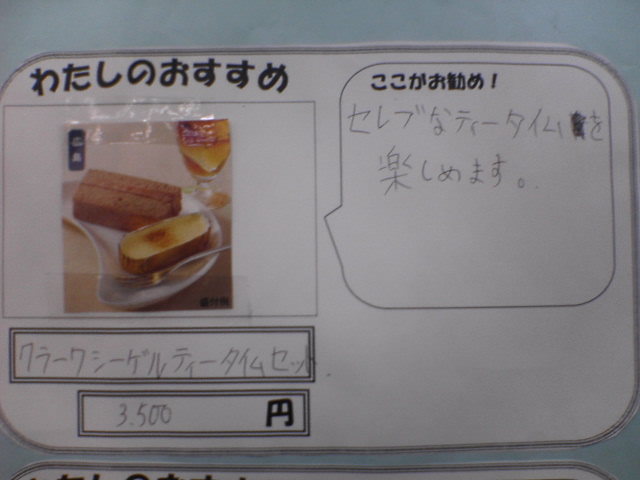 わたしのおすすめ
ここがお勧め!
セレブなティータイムを
楽しめます。
広島
盛付例
クラークシーゲルティータイムセット.
3.500 円